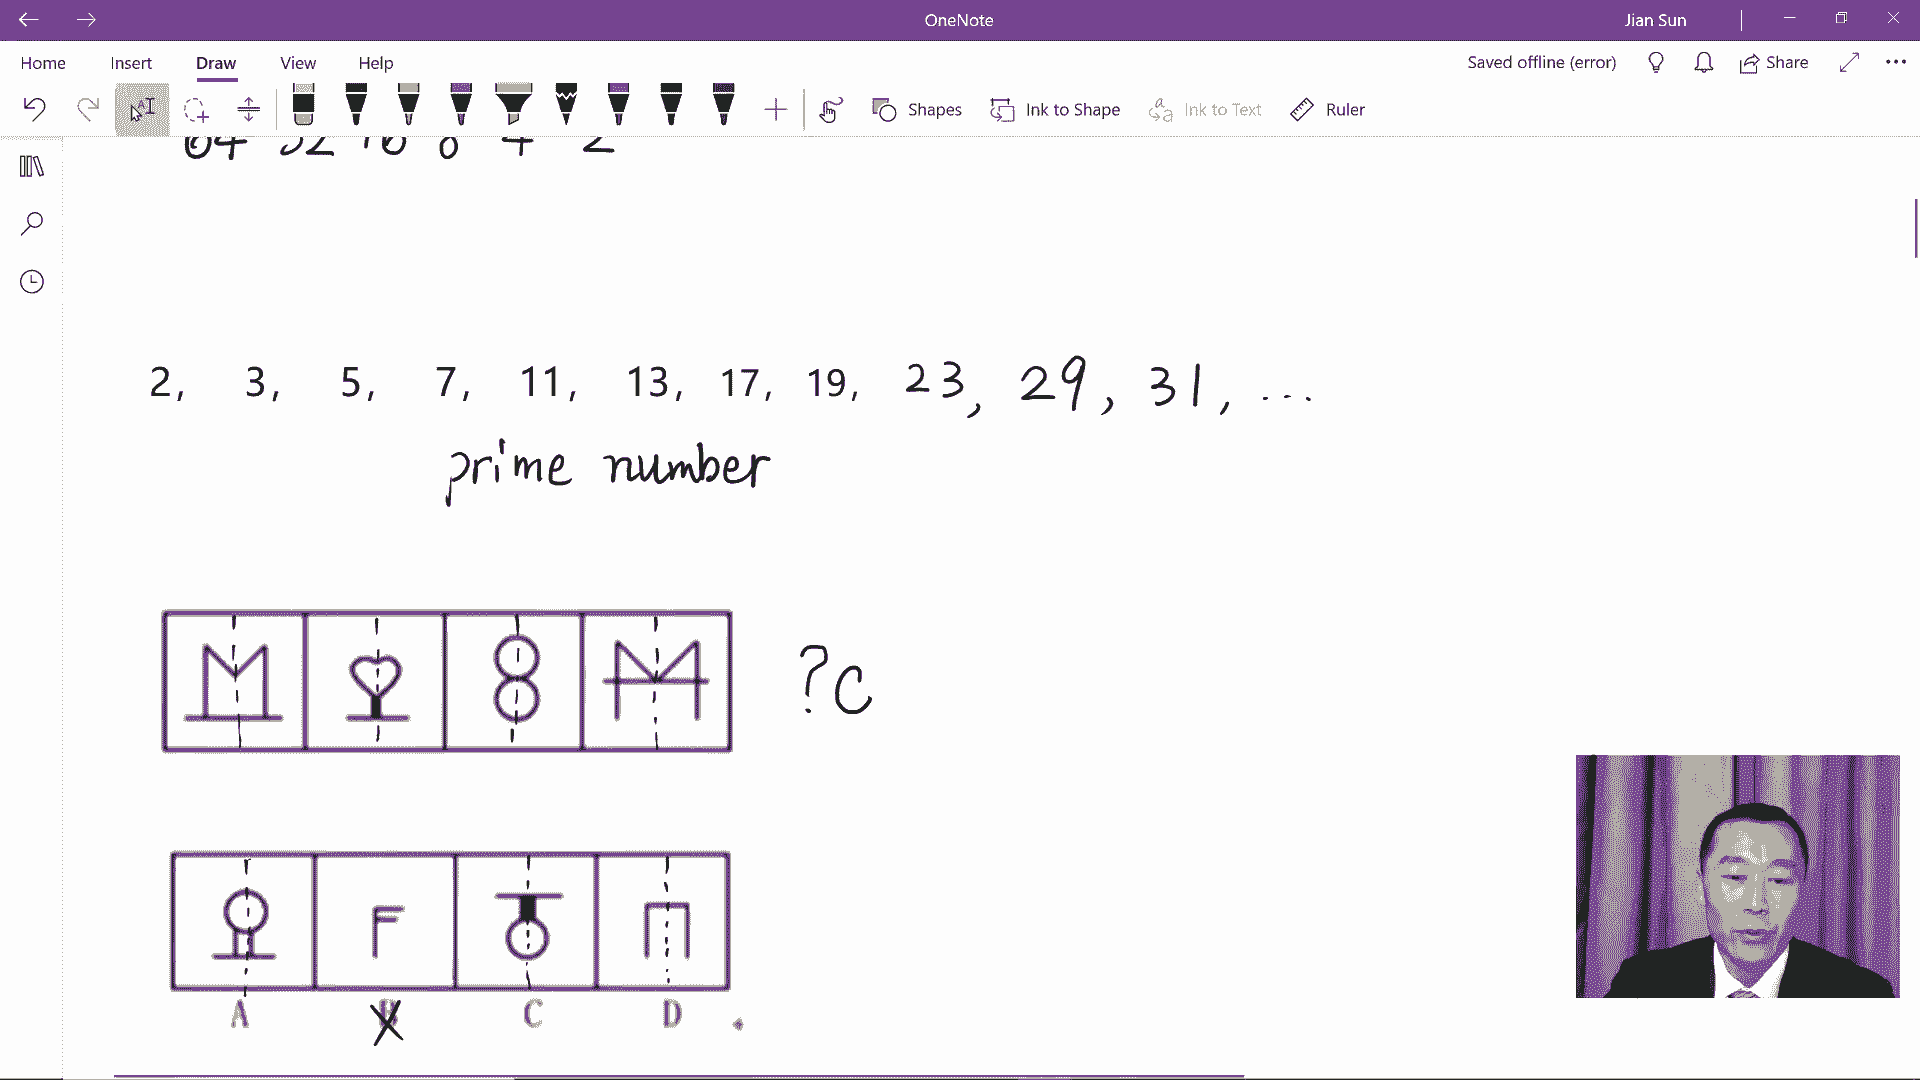 OneNote
Jian Sun
Home Insert Draw View Help
Saved offline (error) Share
Shapes Ink to Shape Ink to Text Ruler
64 32 16 8 4 2
2, 3, 5, 7, 11, 13, 17, 19, 23, 29, 31, ...
prime number
? C
A B C D